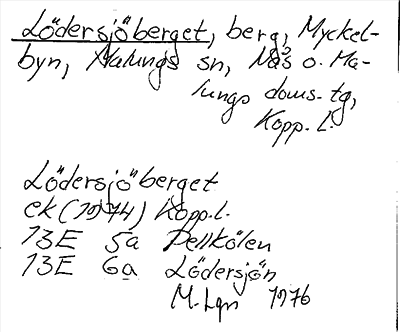 Lödersjöberget, berg, Myckel-
byn, Malungs sn, Nås o. Ma-
lungs doms. tg,
Kopp. L.
Lödersjöberget
ek (1974) Kopp. l.
13E 5a Pellkölen
13E 6a Lödersjön
M. Lgn 1976